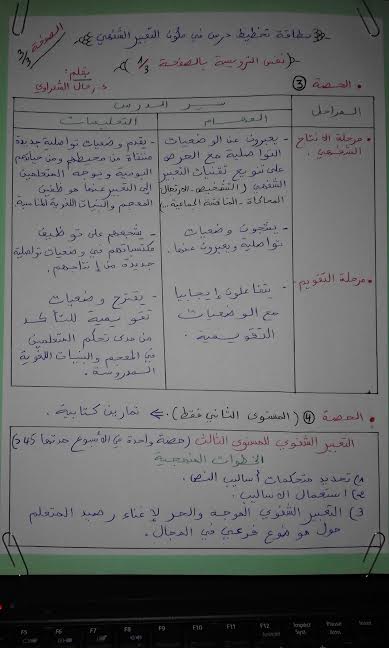 الصفحة 3/3
بطاقة تخطيط درس في مكون التعبير الشفهي
(نفس الترويسة بالصفحة 1/3)
بقلم:
ذ. رحال الشعراوي
• الحصة ③
المراحل
سير الدرس
المهام
التعليمات
• مرحلة الإنتاج
الشفهي.
- يعبرون عن الوضعيات
التواصلية مع الحرص
على تنويع تقنيات التعبير
الشفهي (التشخيص - الارتجال
المحاكاة - المناقشة الجماعية...)
- ينتجون وضعيات
تواصلية ويعبرون عنها.
- يقدم وضعيات تواصلية جديدة
منتقاة من محيطهم ومن حياتهم
اليومية ويوجه المتعلمين
إلى التعبير عنها موظفين
المعجم والبنيات اللغوية المناسبة.
- يشجعهم على توظيف
مكتسباتهم في وضعيات تواصلية
جديدة من إنتاجهم.
• مرحلة التقويم
- يتفاعلون إيجابيا
مع الوضعيات
التقويمية.
- يقترح وضعيات
تقويمية للتأكد
من مدى تحكم المتعلمين
في المعجم والبنيات اللغوية
المدروسة.
• الحصة ④ (المستوى الثاني فقط). ⇐ تمارين كتابية.
التعبير الشفوي للمستوى الثالث (حصة واحدة في الأسبوع مدتها 45د)
الخطوات المنهجية
1) تحديد متحكمات أساليب النص.
2) استعمال الأساليب.
3) التعبير الشفوي الموجه والحر لإغناء رصيد المتعلم
حول موضوع فرعي في المجال.
F5 F6 F7 F8 F9 F10 F11 F12